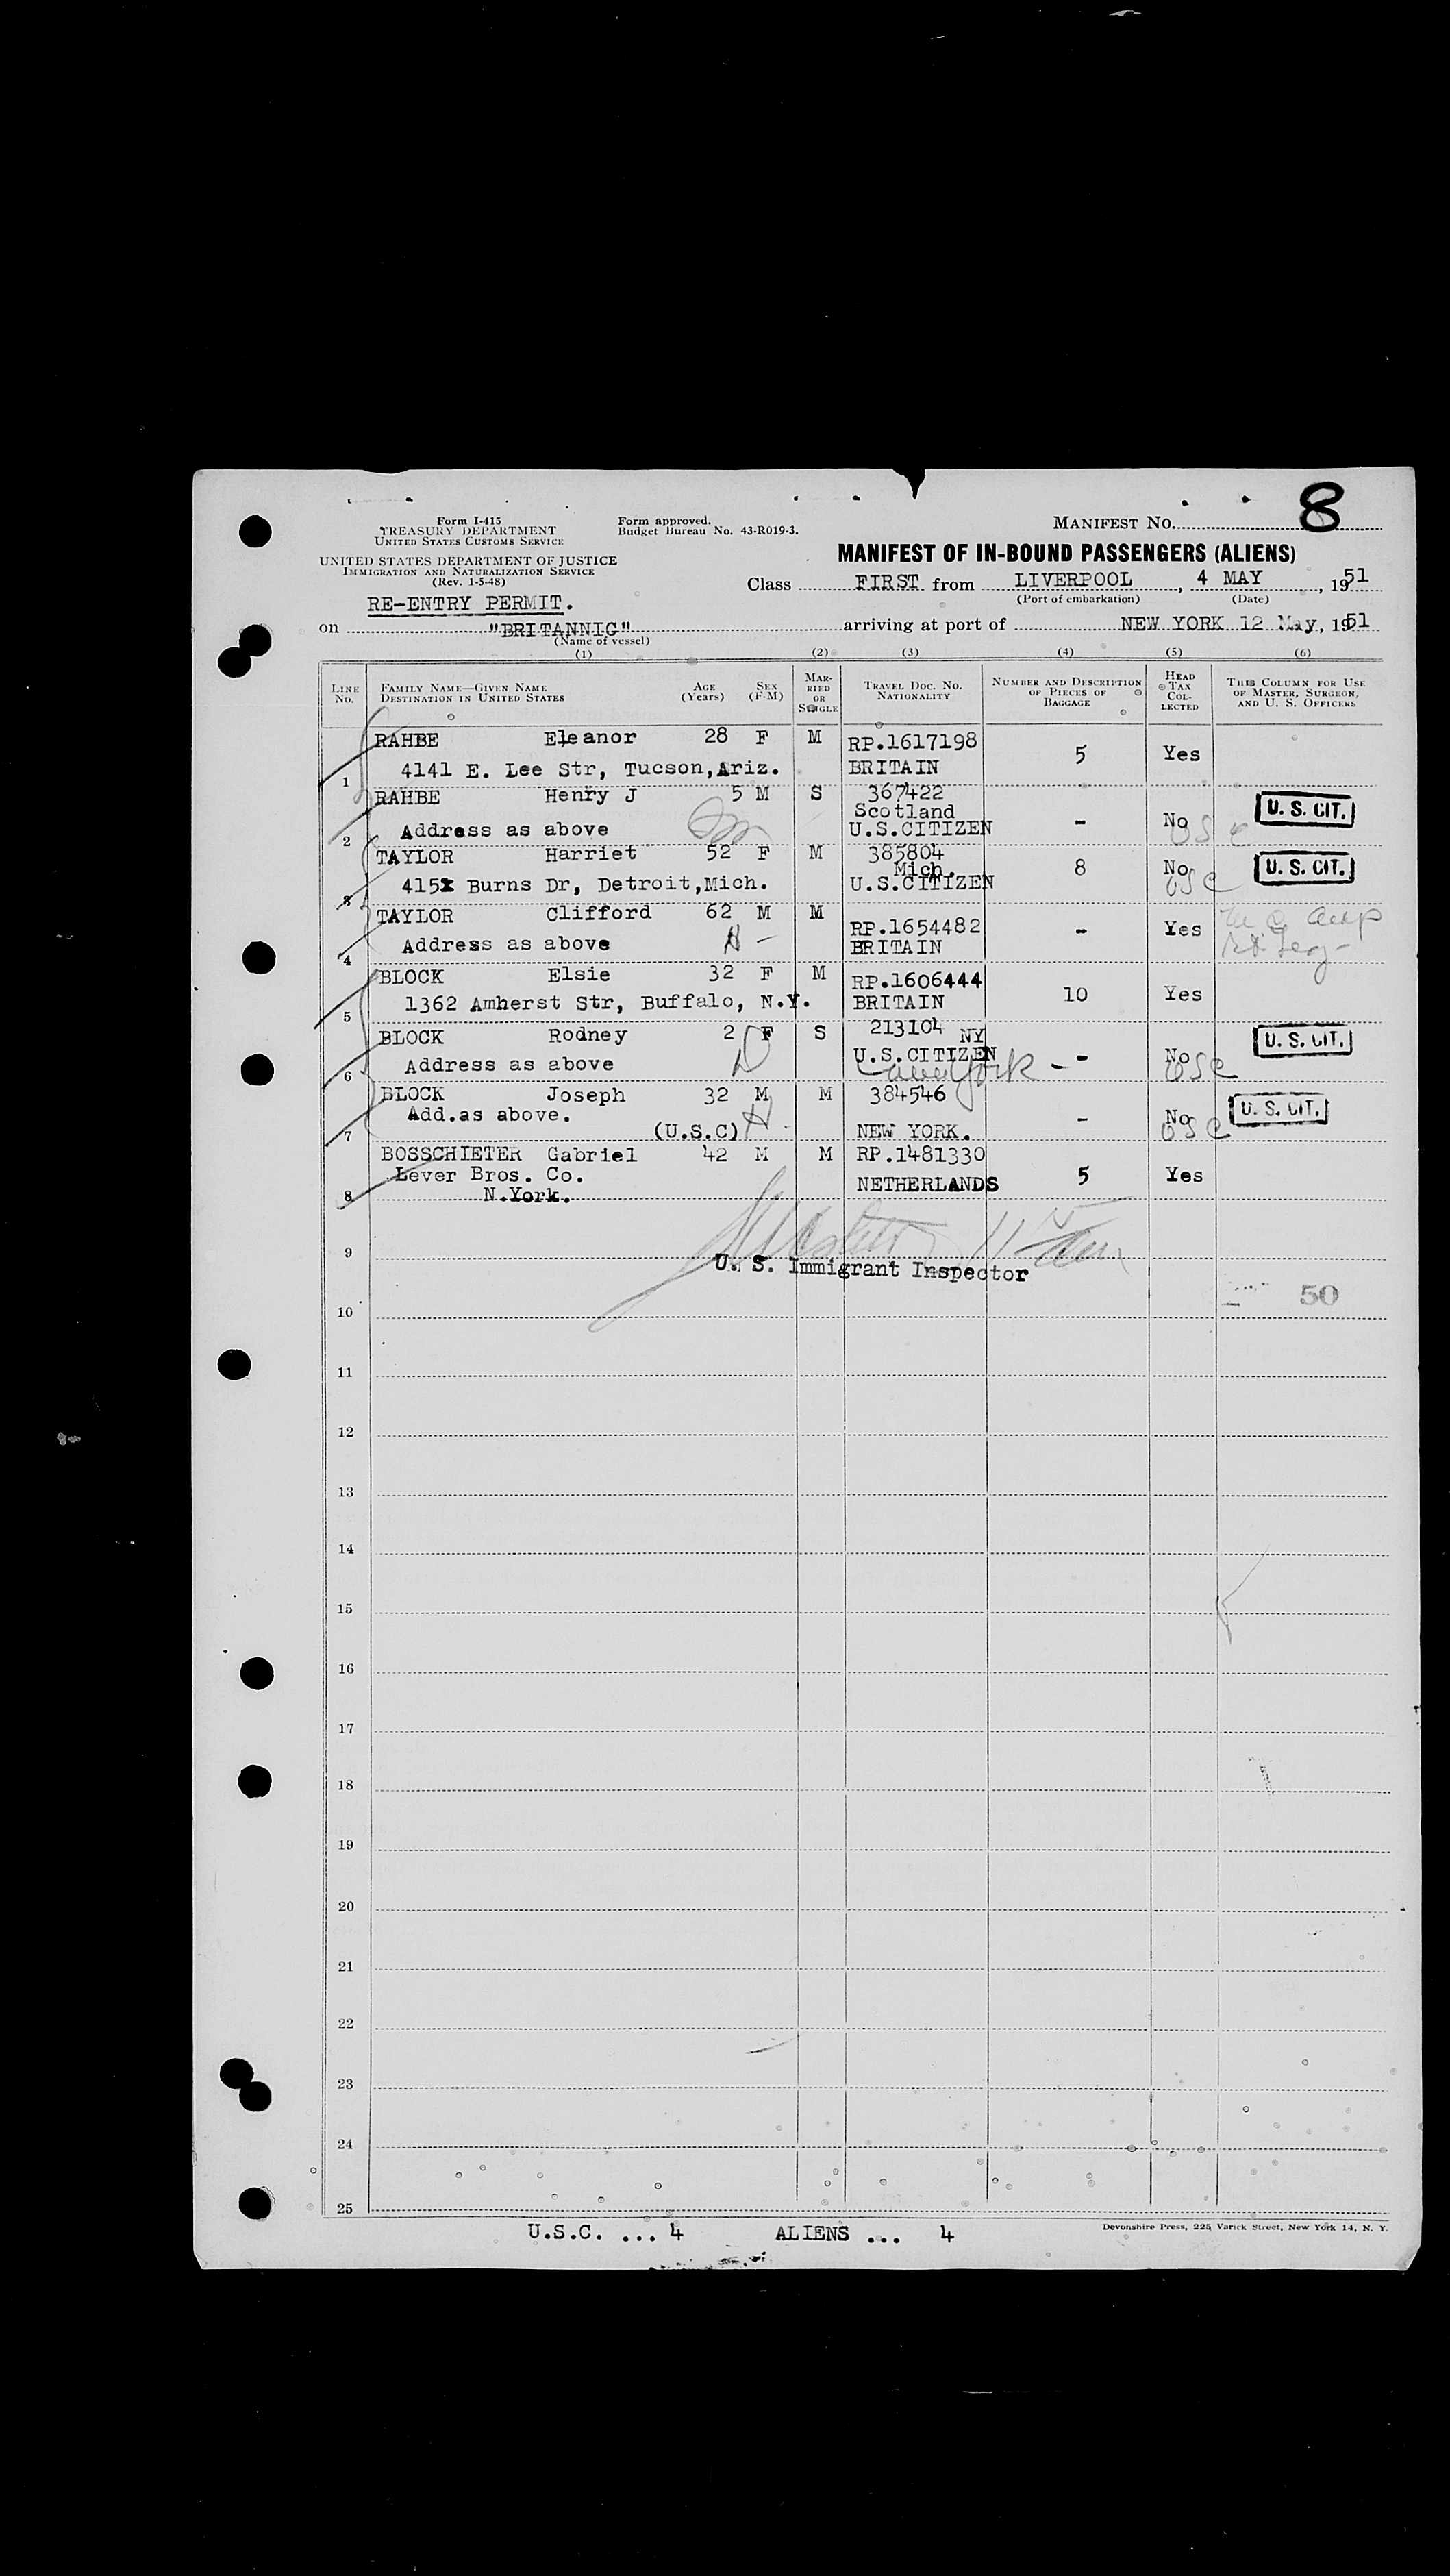 8
Form I-415
TREASURY DEPARTMENT
UNITED STATES CUSTOMS SERVICE
Form approved.
Budget Bureau No. 43-R019-3.
MANIFEST NO.
UNITED STATES DEPARTMENT OF JUSTICE
IMMIGRATION AND NATURALIZATION SERVICE
(Rev. 1-5-48)
MANIFEST OF IN-BOUND PASSENGERS (ALIENS)
Class FIRST from LIVERPOOL, 4 MAY, 1951
(Port of embarkation) (Date)
RE-ENTRY PERMIT.
on "BRITANNIC" arriving at port of NEW YORK 12 May, 1951
(Name of vessel)
(1) (2) (3) (4) (5) (6)
LINE NO. FAMILY NAME—GIVEN NAME DESTINATION IN UNITED STATES AGE (Years) SEX (F-M) MARRIED OR SINGLE TRAVEL DOC. NO. NATIONALITY NUMBER AND DESCRIPTION OF PIECES OF BAGGAGE HEAD TAX COLLECTED THIS COLUMN FOR USE OF MASTER, SURGEON, AND U. S. OFFICERS
RAHBE Eleanor 28 F M RP.1617198 5 Yes
1 4141 E. Lee Str, Tucson,Ariz. BRITAIN
RAHBE Henry J 5 M S 367422
Scotland
2 Address as above U.S.CITIZEN - No USC U. S. CIT.
TAYLOR Harriet 52 F M 385804
Mich.
3 415 Burns Dr, Detroit,Mich. U.S.CITIZEN 8 No USC U. S. CIT.
TAYLOR Clifford 62 M M RP.1654482 - Yes
4 Address as above BRITAIN
BLOCK Elsie 32 F M RP.1606444 10 Yes
5 1362 Amherst Str, Buffalo, N.Y. BRITAIN
BLOCK Rodney 2 F S 213104 NY
6 Address as above U.S.CITIZEN - No USC U. S. CIT.
York
BLOCK Joseph 32 M M 384546
Add.as above.
7 (U.S.C) NEW YORK. - No USC U. S. CIT.
BOSSCHIETER Gabriel 42 M M RP.1481330
Lever Bros. Co. NETHERLANDS 5 Yes
8 N.York.
9
U. S. Immigrant Inspector
50
10
11
12
13
14
15
16
17
18
19
20
21
22
23
24
25
U.S.C. ... 4 ALIENS ... 4
Devonshire Press, 225 Varick Street, New York 14, N. Y.